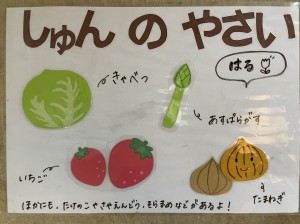 しゅん の やさい
はる
きゃべつ
あすぱらがす
いちご
たまねぎ
ほかにも、たけのこやさやえんどう、そらまめなどがあるよ！